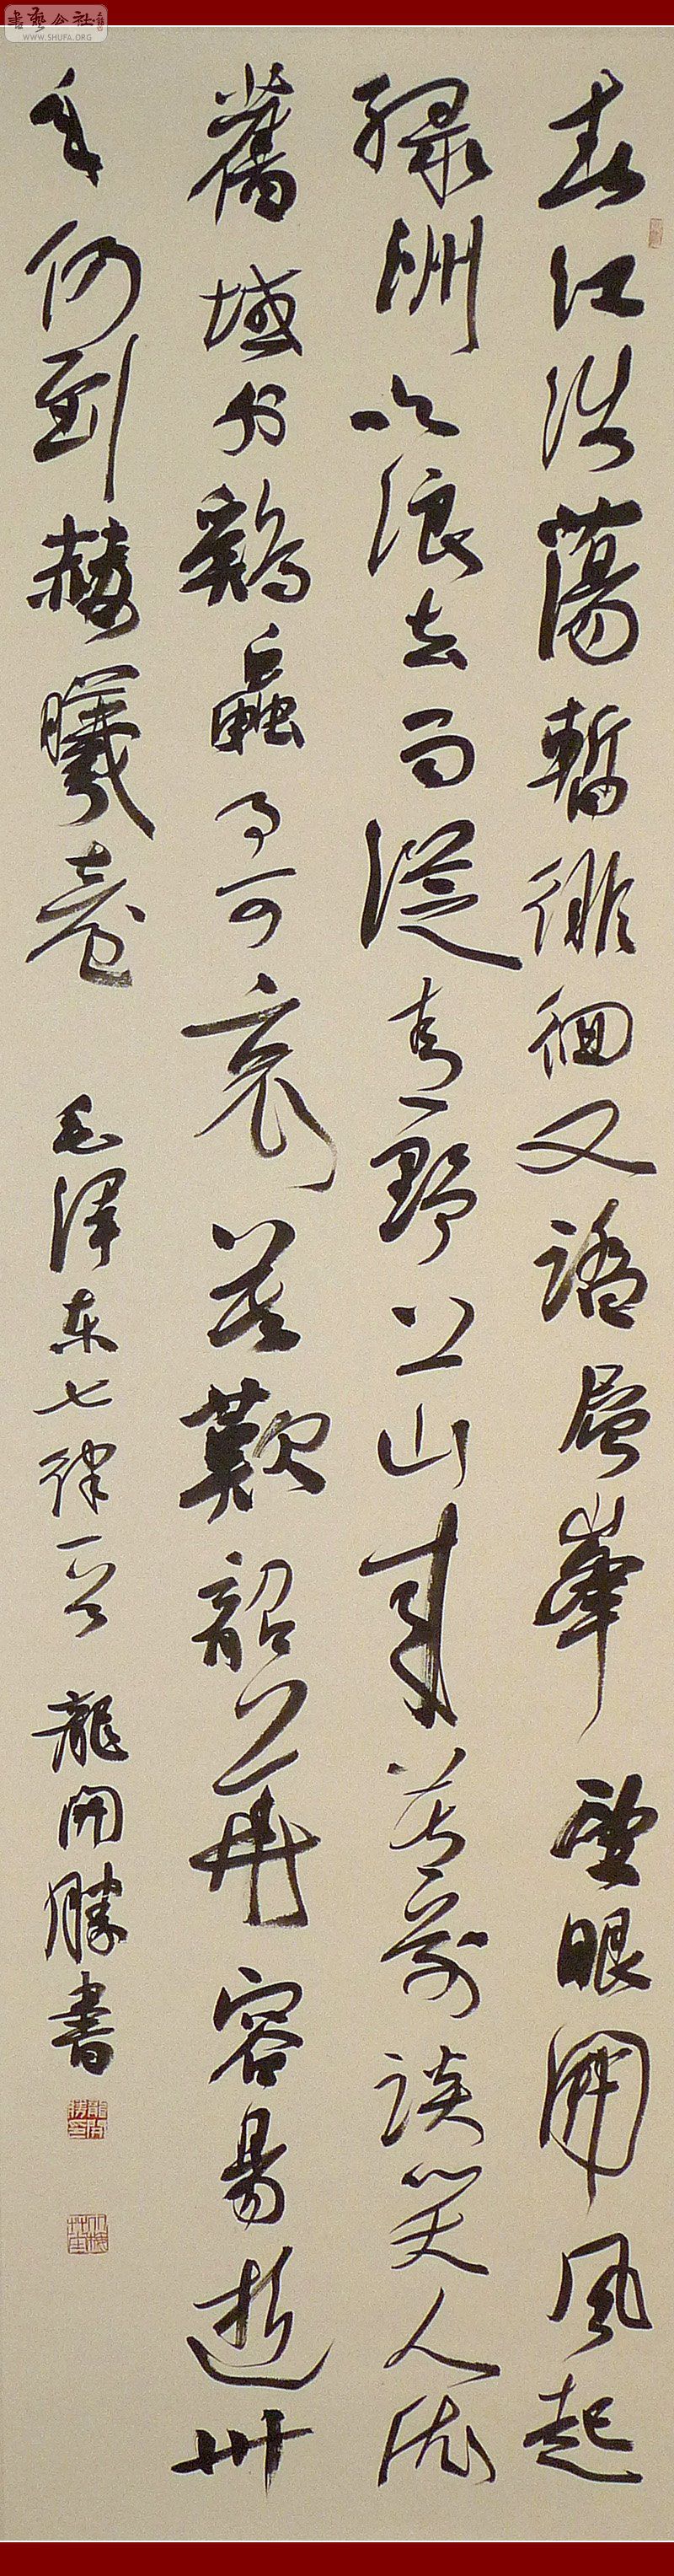 書藝公社
WWW.SHUFA.ORG
春江浩蕩暫徘徊又踏層峯望眼開風起
綠洲吹浪去雨從青野上山來尊前談笑人依
舊域外鷄蟲事可哀莫歎韶華容易逝卅
年仍到赫曦臺 毛澤東七律一首 龍開勝書